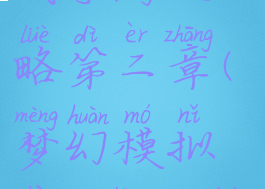 lüè dì èr zhāng
略第二章(
mèng huàn mó nǐ
梦幻模拟